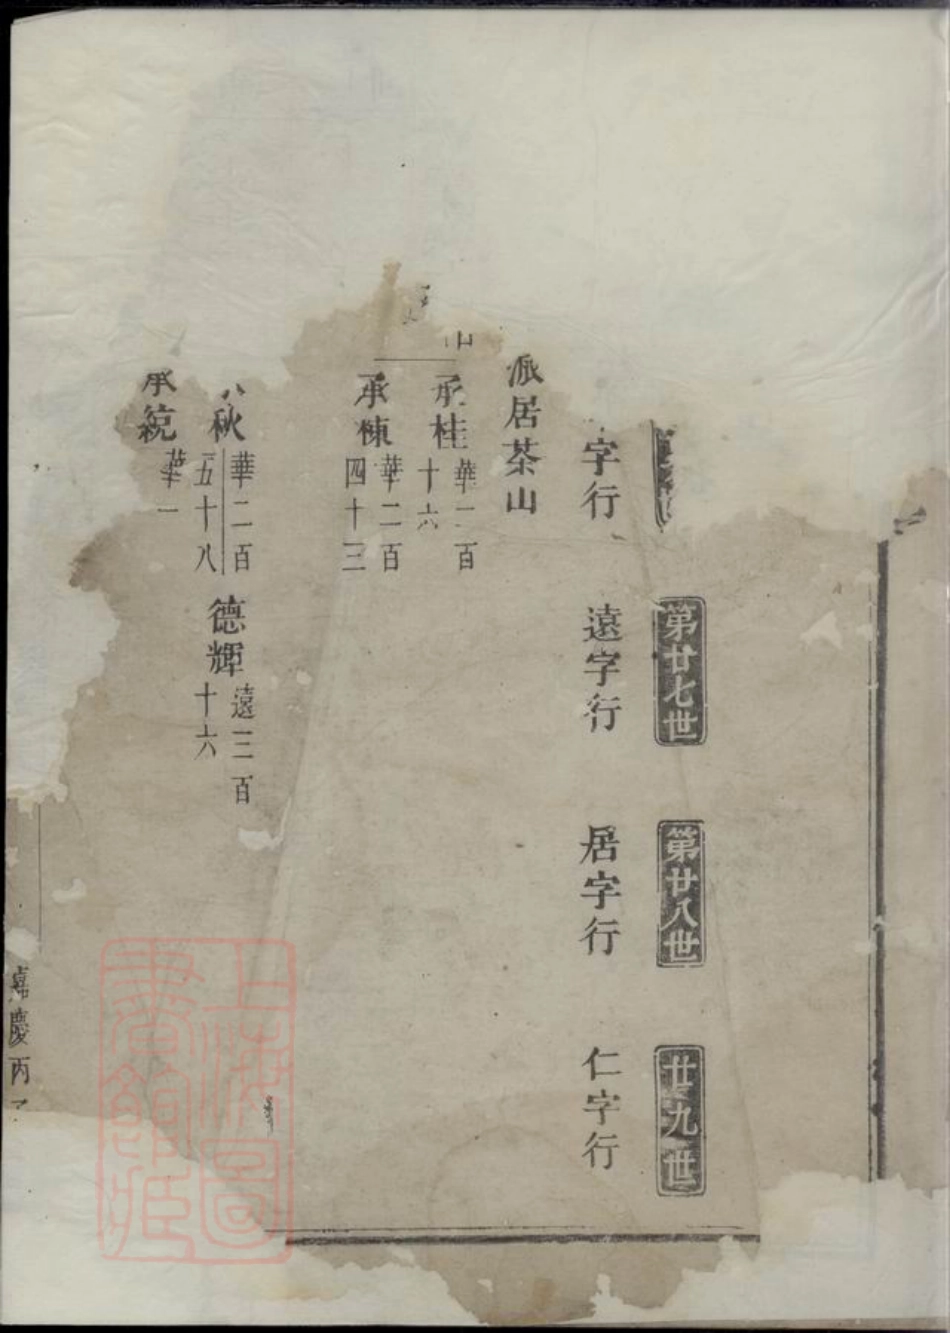 第廿七世
第廿八世
廿九世
字行
遠字行
居字行
仁字行
派居茶山
承桂
華二百
十六
承棟
華二百
四十三
秋
華二百
五十八
德輝
遠三百
十六
承統
華一
嘉慶丙
上海圖
書館藏